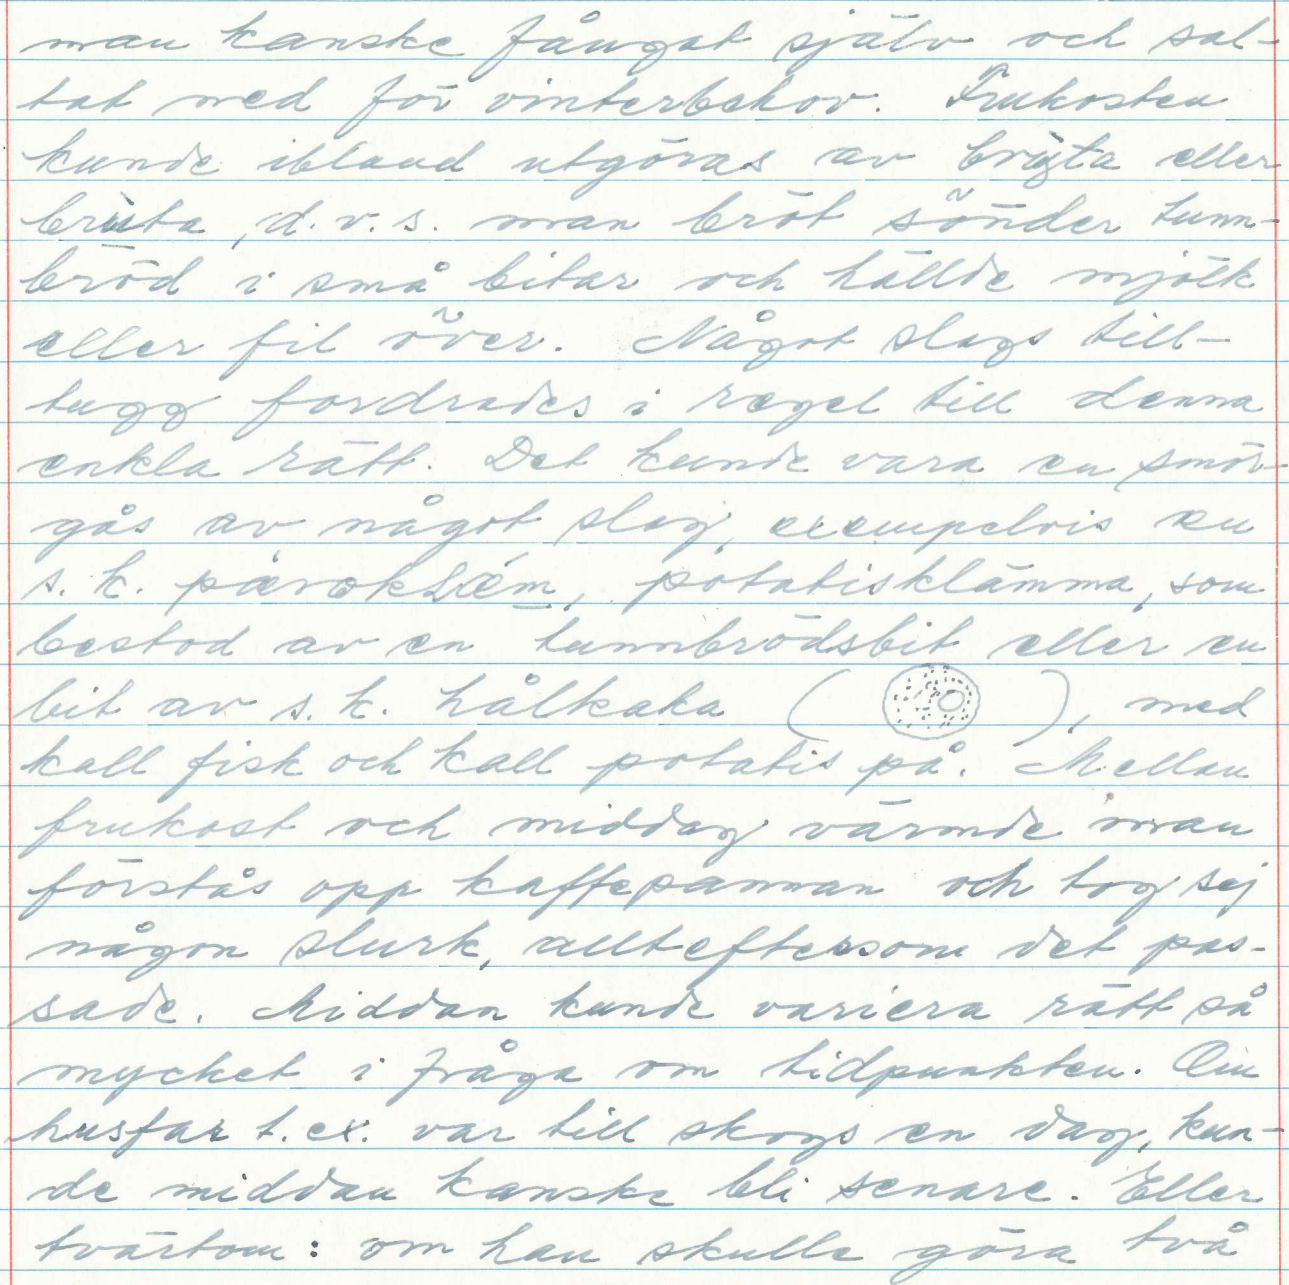 man kanske fångat själv och sal-
tat med för vinterbehov. Frukosten
kunde ibland utgöras av brÿta eller
brùta, d.v.s. man bröt sönder tunn-
bröd i små bitar och hällde mjölk
eller fil över. Något slags till-
tugg fordrades i regel till denna
enkla rätt. Det kunde vara en smör-
gås av något slag, exempelvis en
s.k. potatisklämma, som
bestod av en tunnbrödsbit eller en
bit av s.k. hålkaka ( ), med
kall fisk och kall potatis på. Mellan
frukost och middag värmde man
förstås opp kaffepannan och tog sej
någon slurk, allteftersom det pas-
sade. Middan kunde variera rätt så
mycket i fråga om tidpunkten. Om
husfar t.ex. var till skogs en dag, kun-
de middan kanske bli senare. Eller
tvärtom: om han skulle göra två